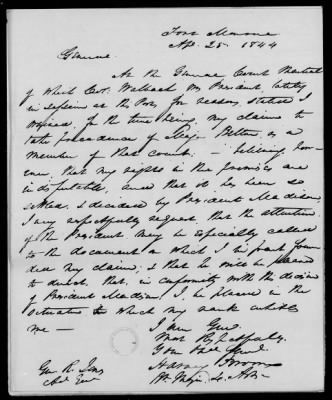 Fort Monroe
Ap. 25. 1844
General
At the General Court Martial
of which Col. Walbach was President, lately
in session at this Post, for reasons stated I
waived, for the time being, my claims to
take precedence of Major Belton, as a
member of that court; — believing, how-
ever, that my rights in the premises are
indisputable, and that it has been so
settled & decided by President Madison,
I very respectfully request that the attention
of the President may be especially called
to the document on which I in part foun-
ded my claim, & that he will be pleased
to direct that, in conformity with the decision
of President Madison, I be placed in the
situation to which my rank entitles
me —
I am Genl.
Most Respectfully
Your Obt. Servt.
Harvey Brown
Bt. Major 4. Art.
Gen R. Jones
Adt. Genl